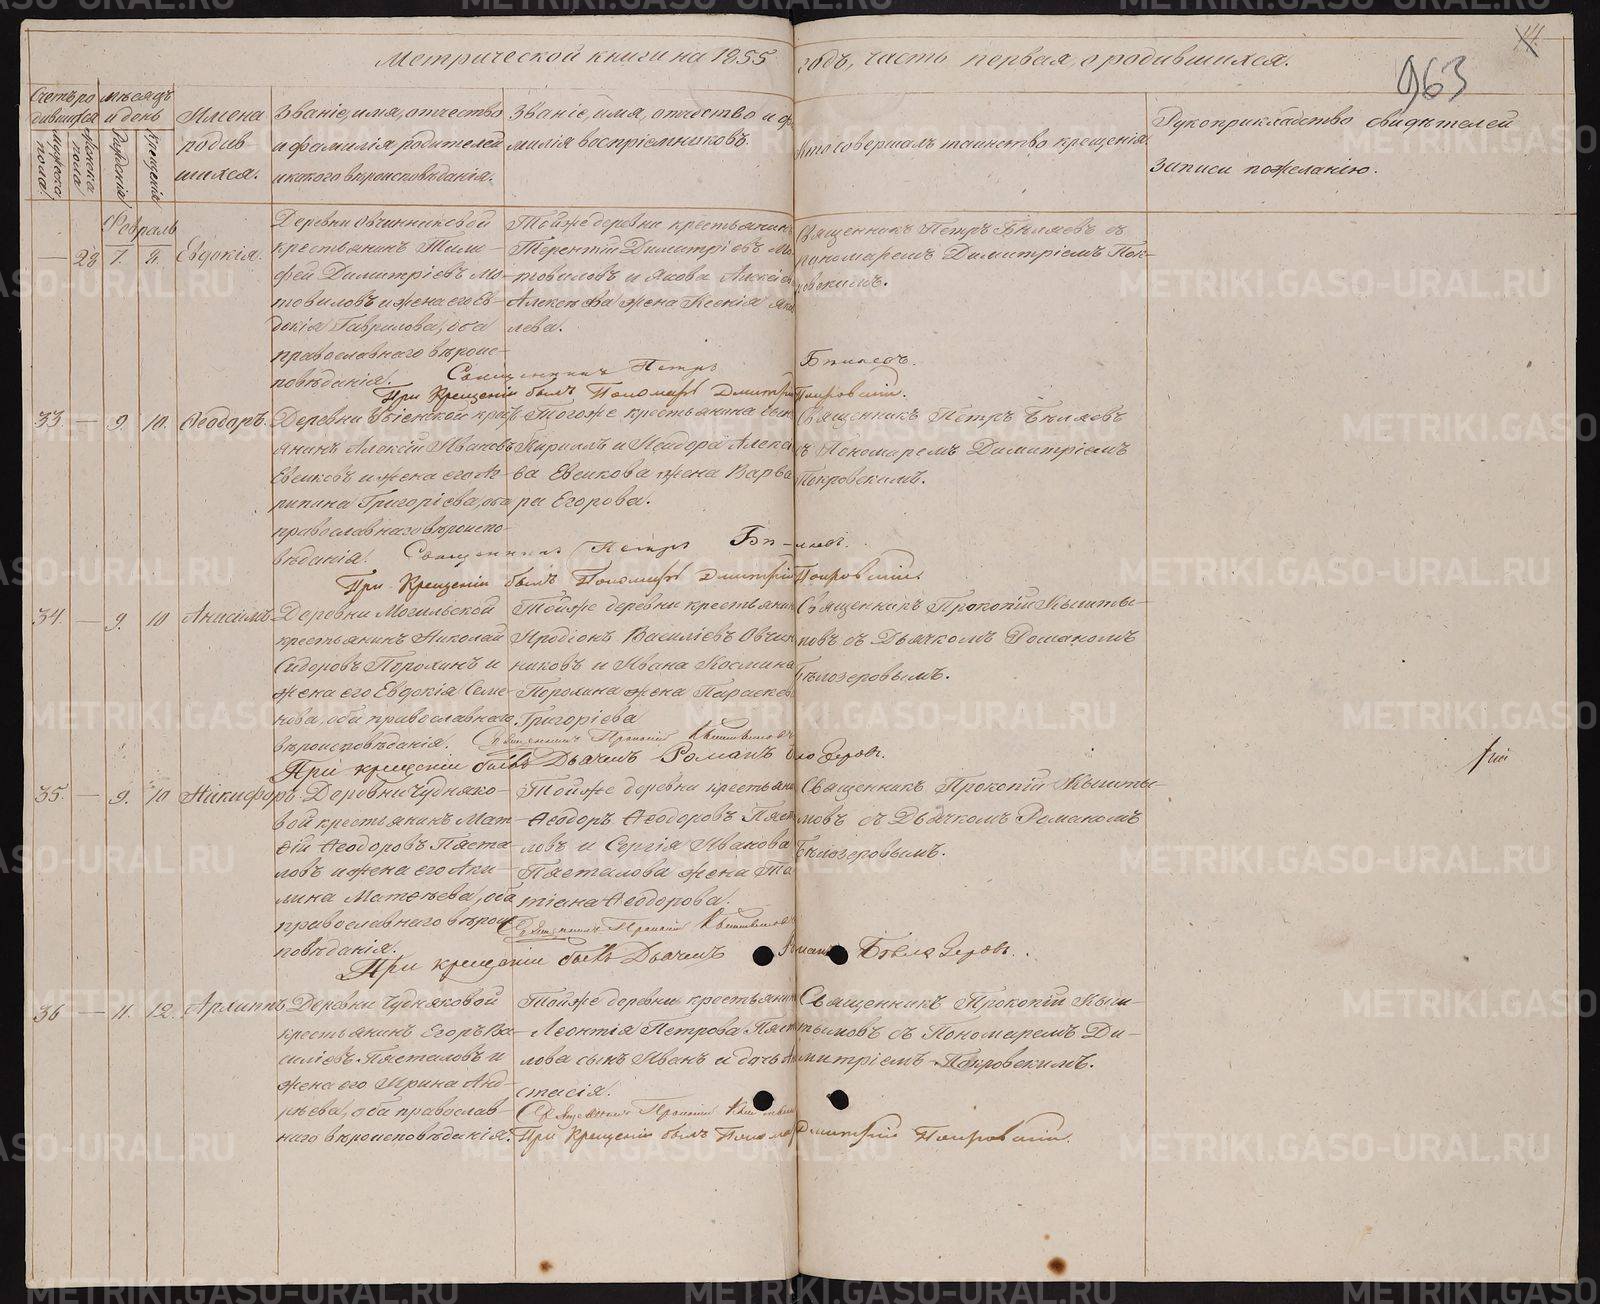 Метрической книги на 1855 годъ, часть первая, о родившихся.
963
14
Счетъ родившихся
мужеска пола
женска пола
мѣсяцъ и день
Рожденія
Крещенія
Имена родившихся.
Званіе, имя, отчество и фамилія родителей и какого вѣроисповѣданія.
Званіе, имя, отчество и фамилія воспріемниковъ.
Кто совершалъ таинство крещенія.
Рукоприкладство свидѣтелей записи по желанію.
Февраль
— 28 1. 2. Евдокія.
Деревни Овчинниковой
крестьянинъ Тимо-
фей Димитріевъ Мо-
товиловъ и жена его Ев-
докія Гаврилова, оба
православнаго вѣроис-
повѣданія.
Той же деревни крестьянинъ
Терентій Димитріевъ Мо-
товиловъ и Якова Алексѣева
жена Ксенія
лева.
Священникъ Петръ Бѣляевъ съ
пономаремъ Димитріемъ Пок-
ровскимъ.
Священникъ Петръ Бѣляевъ.
При Крещеніи былъ Пономарь Дмитрій Покровскій.
33. — 9. 10. Ѳеодоръ.
Деревни
янинъ Алексій Ивановъ
Евсиковъ и жена его Аг-
рипина Григоріева, оба
православнаго вѣроиспо-
вѣданія.
Тогоже крестьянина сынъ
Кириллъ и Ѳеодора
ва Евсикова жена Варва
ра Егорова.
Священникъ Петръ Бѣляевъ
съ Пономаремъ Димитріемъ
Покровскимъ.
Священникъ Петръ Бѣляевъ.
При Крещеніи былъ Пономарь Дмитрій Покровскій.
34. — 9. 10 Анисимъ.
Деревни Могильской
крестьянинъ Николай
Сидоровъ Порохинъ и
жена его Евдокія Семе-
нова, оба православнаго
вѣроисповѣданія.
Той же деревни крестьянинъ
Иродіонъ Василіевъ Овчин
никовъ и Ивана Космина
Порохина жена Параскева
Григоріева
Священникъ Прокопій Кышты-
мовъ съ Дьячкомъ Романомъ
Бѣлозеровымъ.
Священникъ Прокопій Кыштымовъ
При крещеніи былъ Дьячекъ Романъ Бѣлозеровъ.
35. — 9. 10 Никифоръ.
Деревни Чудняко-
вой крестьянинъ Мат-
ѳій Ѳеодоровъ Пяста-
ловъ и жена его Аки-
лина Матѳѣева, оба
православнаго вѣроис
повѣданія.
Той же деревни крестьянинъ
Ѳеодоръ Ѳеодоровъ Пяста
ловъ и Сергія Иванова
Пясталова жена Та
тіана Ѳеодорова.
Священникъ Прокопій Кышты-
мовъ съ Дьячкомъ Романомъ
Бѣлозеровымъ.
Священникъ Прокопій Кыштымовъ
При крещеніи былъ Дьячекъ Романъ Бѣлозеровъ.
36 — 11. 12. Архиппъ
Деревни Чудняковой
крестьянинъ Егоръ Ва-
силіевъ Пясталовъ и
жена его Ирина Анд-
рѣева, оба православ-
наго вѣроисповѣданія.
Той же деревни крестьянина
Леонтія Петрова Пяста
лова сынъ Иванъ и дочь Ана
стасія.
Священникъ Прокопій Кыш-
тымовъ съ Пономаремъ Ди-
митріемъ Покровскимъ.
Священникъ Прокопій Кыштымовъ
При Крещеніи былъ Пономарь Дмитрій Покровскій.
METRIKI.GASO-URAL.RU